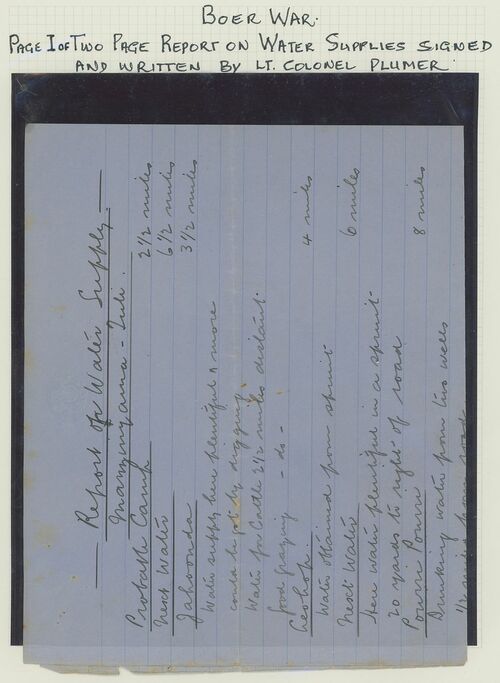 BOER WAR.
PAGE 1 OF TWO PAGE REPORT ON WATER SUPPLIES SIGNED
AND WRITTEN BY LT. COLONEL PLUMER.
Report of Water Supply
Manyinyama - Tuli.
Probable Camp 2 1/2 miles
Next Water 6 1/2 miles
Jahoonda 3 1/2 miles
Water supply here plentiful & more
could be got by digging
Water for Cattle 2 1/2 miles distant.
Good grazing - do -
4 miles
Water obtained from spruit
Next Water 6 miles
Here water plentiful in a spruit
20 yards to right of road
Pourri Pourri 8 miles
Drinking water from two wells
1/2 miles from road